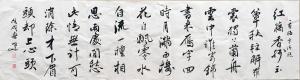 紅藕香殘玉
簟秋輕解羅
裳獨上蘭舟
雲中誰寄錦
書來雁字回
時月滿西樓
花自飄零水
自流一種相
思兩處閒愁
此情無計可
消除才下眉
頭卻上心頭